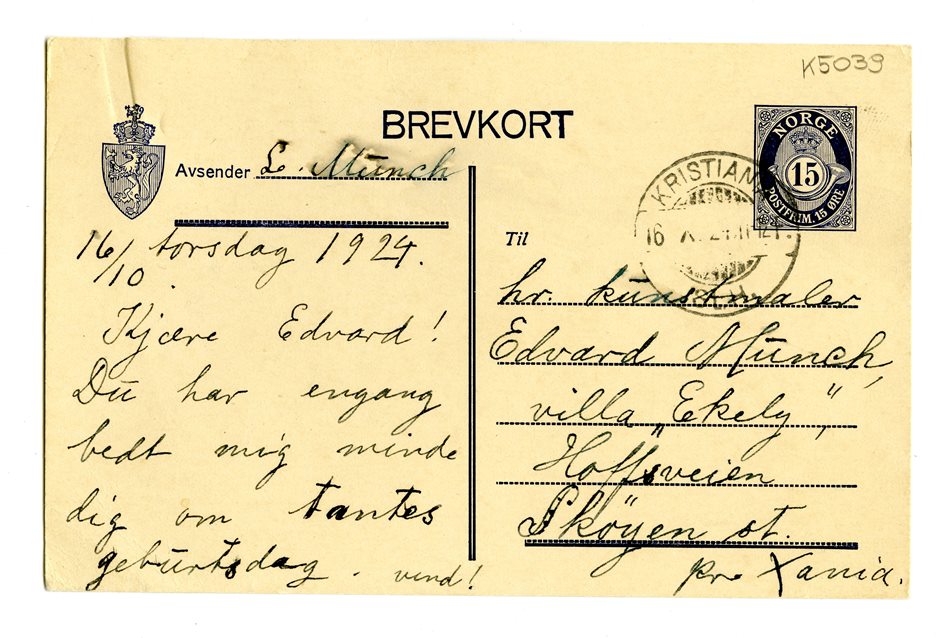 K5039
BREVKORT
NORGE
15
POSTFRIM. 15 ØRE
KRISTIANIA
16 X 24
Avsender L. Munch
16/10. torsdag 1924.
Kjære Edvard!
Du har engang
bedt mig minde
dig om tantes
geburtsdag. vend!
Til
hr. kunstmaler
Edvard Munch,
villa „Ekely",
Hoffsveien
Skøyen st.
pr. Xania.